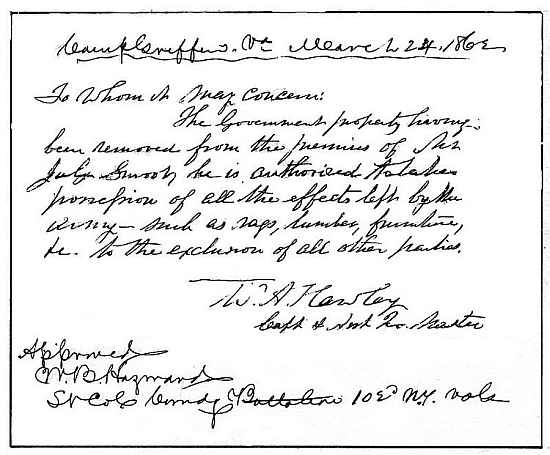 Camp Griffin. Va March 24. 1862
To Whom it May Concern:
The Government property having
been removed from the premises of Mr
Smoot, he is authorised to take
possession of all the effects left by the
army – such as rags, lumber, furniture,
&c. to the exclusion of all other parties.
W. A. Hawley
Capt & Asst Qr. Master
Approved
W. B. Hayward
Lt Col Comdg 102d N.Y. Vols